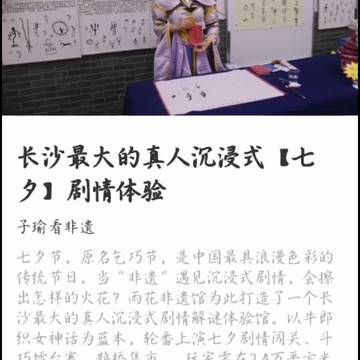 长沙最大的真人沉浸式【七
夕】剧情体验
子瑜看非遗
七夕节，原名乞巧节，是中国最具浪漫色彩的
传统节日。当“非遗”遇见沉浸式剧情，会擦
出怎样的火花？雨花非遗馆为此打造了一个长
沙最大的真人沉浸式剧情解谜体验馆。以牛郎
织女神话为蓝本，轮番上演七夕剧情闯关、斗